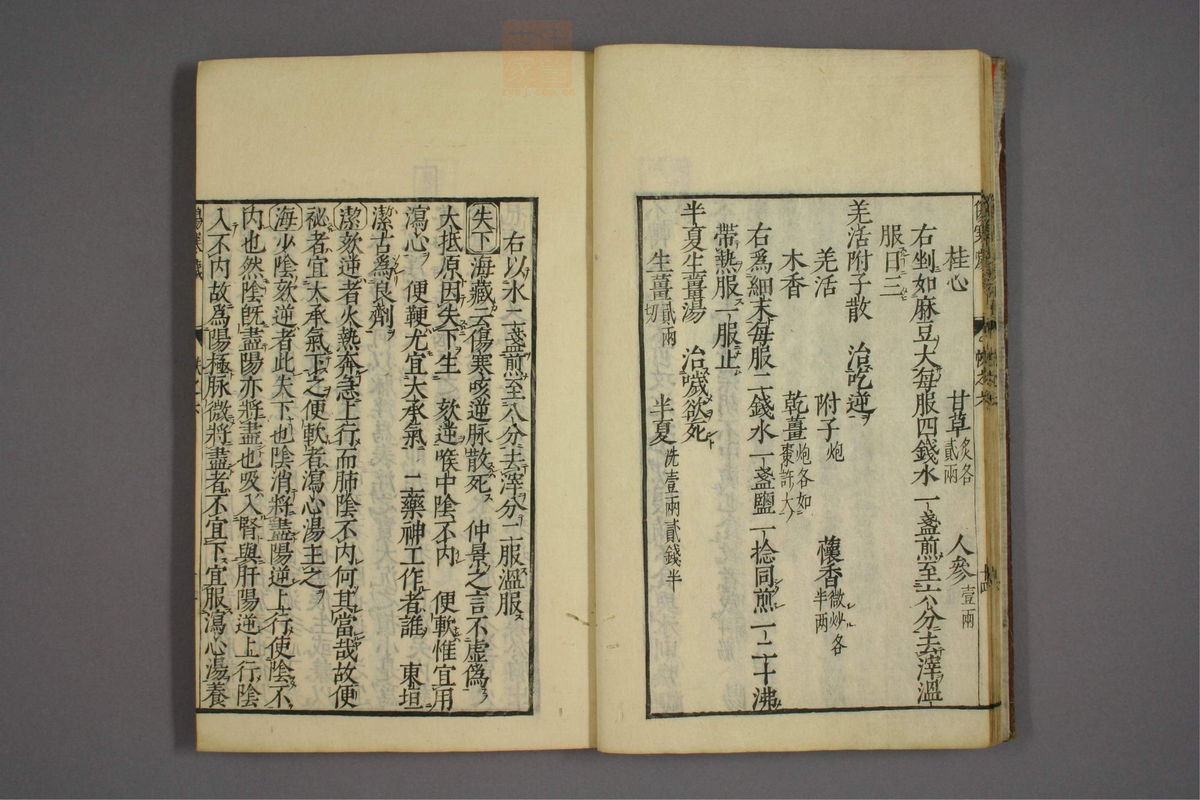 桂心　甘草炙各貳兩　人參壹兩
右剉如麻豆大每服四錢水一盞煎至六分去滓溫
服日三
羌活附子散　治吃逆
羌活　附子炮　蘹香微炒各半两
木香　乾薑炮各如棗許大
右爲細末每服二錢水一盞鹽一捻同煎一二十沸
帶熱服一服止
半夏生薑湯　治噦欲死
生薑貳兩切　半夏洗壹兩貳錢半
右以水二盞煎至八分去滓分二服溫服
失下海藏云傷寒咳逆脉散死　仲景之言不虛僞
大抵原因失下生　欬逆喉中陰不内　便軟惟宜用
瀉心　便鞕尤宜大承氣　二藥神工作者誰　東垣
潔古爲良劑
潔欬逆者火熱奔急上行而肺陰不内何其當哉故便
祕者宜大承氣下之便軟者瀉心湯主之
海少陰欬逆者此失下也陰消將盡陽逆上行使陰不
内也然陰旣盡陽亦將盡也吸入腎與肝陽逆上行陰
入不内故爲陽極脉微將盡者不宜下宜服瀉心湯養